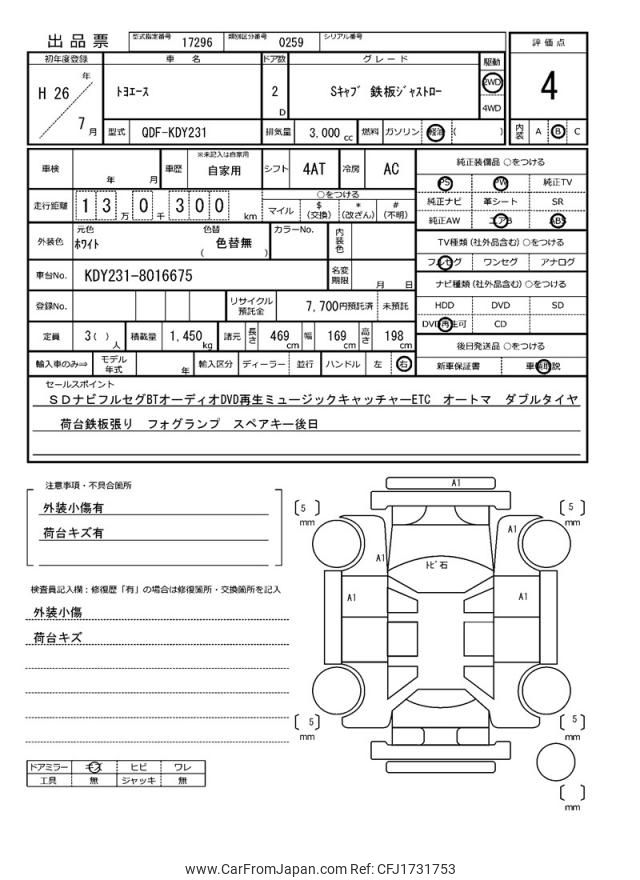 出品票 型式指定番号 17296 類別区分番号 0259 シリアル番号
初年度登録 車名 ドア数 グレード 駆動 評価点
H 26 年 7 月 ﾄﾖｴｰｽ 2 D Sｷｬﾌﾞ 鉄板ｼﾞｬｽﾄﾛｰ 2WD 4WD 4
型式 QDF-KDY231 排気量 3,000 cc 燃料 ガソリン 軽油 ( ) 内装 A B C
車検 年 月 車歴 ※未記入は自家用 自家用 シフト 4AT 冷房 AC
純正装備品 ○をつける
PS PW 純正TV
純正ナビ 革シート SR
純正AW エアB ABS
走行距離 1 3 万 0 千 3 0 0 km
○をつける
マイル $ (交換) * (改ざん) # (不明)
外装色 元色 ﾎﾜｲﾄ 色替 ( 色替無 ) カラーNo. 内装色
TV種類 (社外品含む) ○をつける
フルセグ ワンセグ アナログ
車台No. KDY231-8016675 名変期限 月 日
ナビ種類 (社外品含む) ○をつける
HDD DVD SD
DVD再生可 CD
登録No. リサイクル預託金 7,700円預託済 未預託
定員 3( ) 人 積載量 1,450 kg 諸元 長さ 469 cm 幅 169 cm 高さ 198 cm
後日発送品 ○をつける
新車保証書 車輌取説
輸入車のみ⇒ モデル年式 年 輸入区分 ディーラー 並行 ハンドル 左 右
セールスポイント
ＳＤナビフルセグBTオーディオDVD再生ミュージックキャッチャーETC オートマ ダブルタイヤ
荷台鉄板張り フォグランプ スペアキー後日
注意事項・不具合箇所
外装小傷有
荷台キズ有
検査員記入欄：修復歴「有」の場合は修復箇所・交換箇所を記入
外装小傷
荷台キズ
ドアミラー キズ ヒビ ワレ
工具 無 ジャッキ 無
A1
5 mm
5 mm
A1
A1
ﾄﾋﾞ石
A1
A1
5 mm
5 mm
mm
www.CarFromJapan.com Ref: CFJ1731753